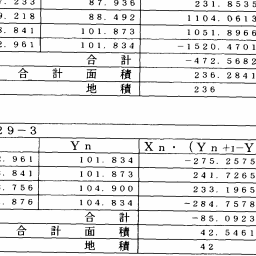 7.233 87.936 231.8535
9.218 88.492 1104.0613
8.841 101.873 1051.8966
2.961 101.834 -1520.4701
合計 -472.5682
合計面積 236.2841
地積 236
29-3
Yn Xn・(Yn+1-Y
2.961 101.834 -275.2575
8.841 101.873 241.7265
3.756 104.900 233.1965
.876 104.834 -284.7578
合計 -85.0923
合計面積 42.5461
地積 42